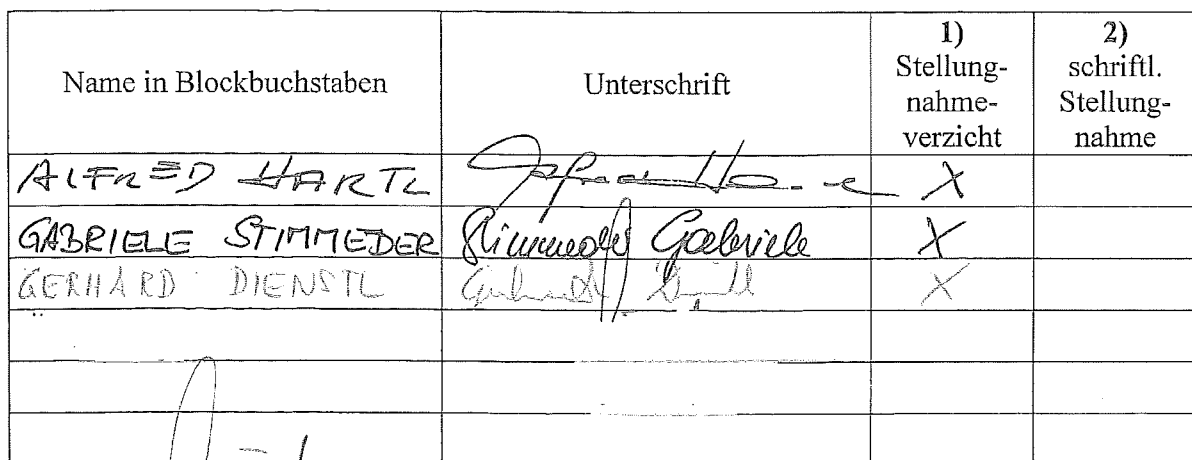 Name in Blockbuchstaben Unterschrift 1) Stellung-nahme-verzicht 2) schriftl. Stellung-nahme
ALFRED HARTL X
GABRIELE STIMMEDER Stimmeder Gabriele X
GERHARD DIENSTL Gerhard Dienstl X